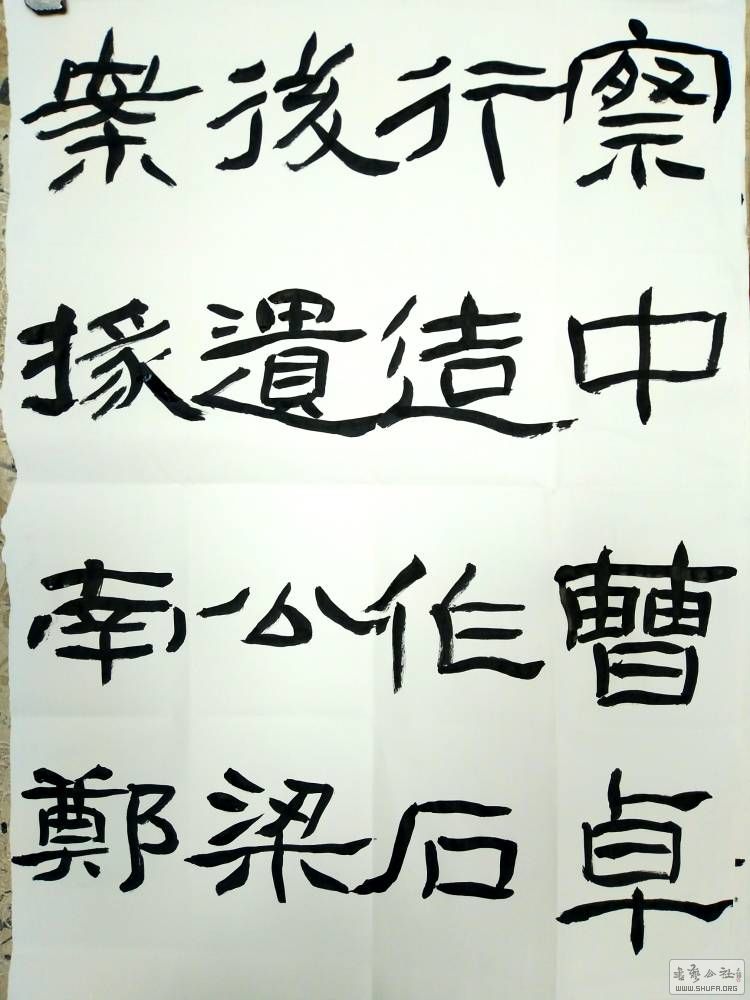 察中曹卓
行造作石
後遺公梁
案掾南鄭
书艺公社
WWW.SHUFA.ORG